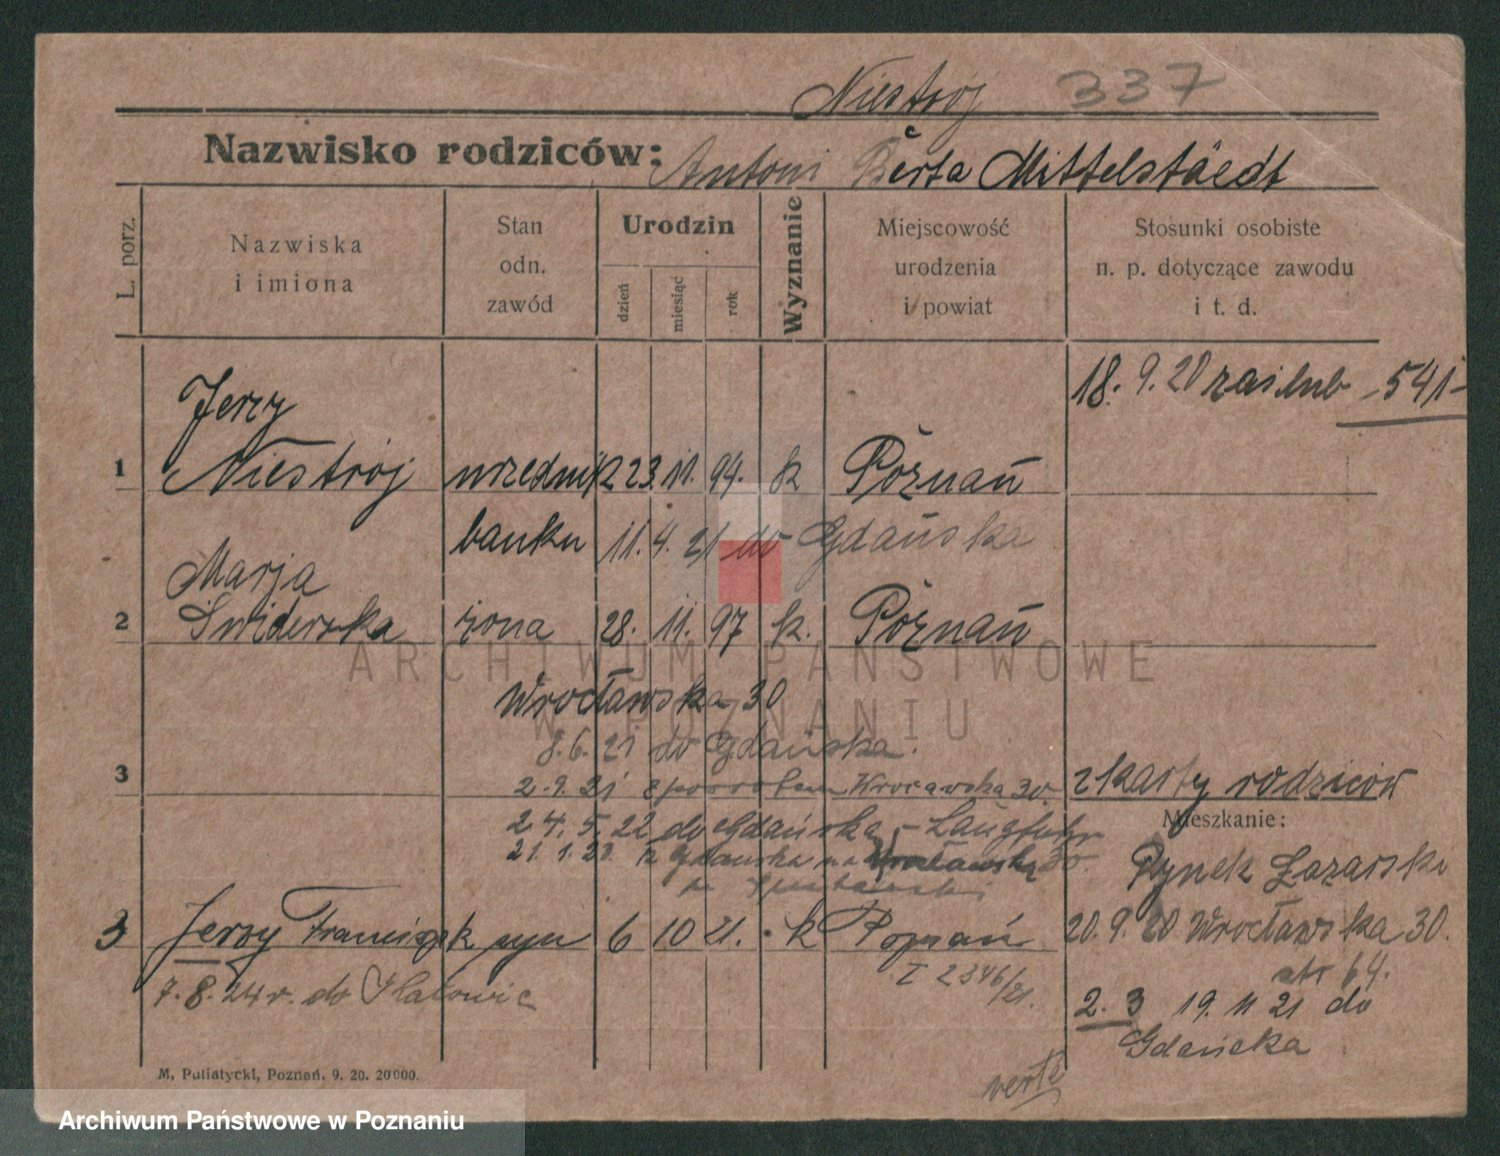 Niestrój 337
Nazwisko rodziców: Antoni Berta Mittelstäedt
L. porz.
Nazwiska
i imiona
Stan
odn.
zawód
Urodzin
dzień
miesiąc
rok
Wyznanie
Miejscowość
urodzenia
i powiat
Stosunki osobiste
n. p. dotyczące zawodu
i t. d.
18. 9. 20 zaślub -541-
Jerzy
1 Niestrój urzednik 23. 11. 94. k Poznań
banku 11. 4. 21 Gdańska
Marja
2 Swiderska żona 28. 11. 97 k. Poznań
Wrocławska 30
8. 6. 21 do Gdańska.
3 2. 9. 21 spowrotem Wrocawska 30.
z karty rodziców
Mieszkanie:
2. 4. 5. 22 do Gdańska - Langfuhr
21. 1. 23. z Gdańska na Wrocławską 30.
Rynek Łazarski
3 Jerzy Franciszek syn 6 10 21. k Poznań
20. 9. 20 Wrocławska 30.
I 2346/21.
64.
7. 8. 24 r. do Katowic
2. 3 19. 11 21 do
Gdańska
verte
M. Putiatycki, Poznań. 9. 20. 20000.
ARCHIWUM PAŃSTWOWE
W POZNANIU
Archiwum Państwowe w Poznaniu